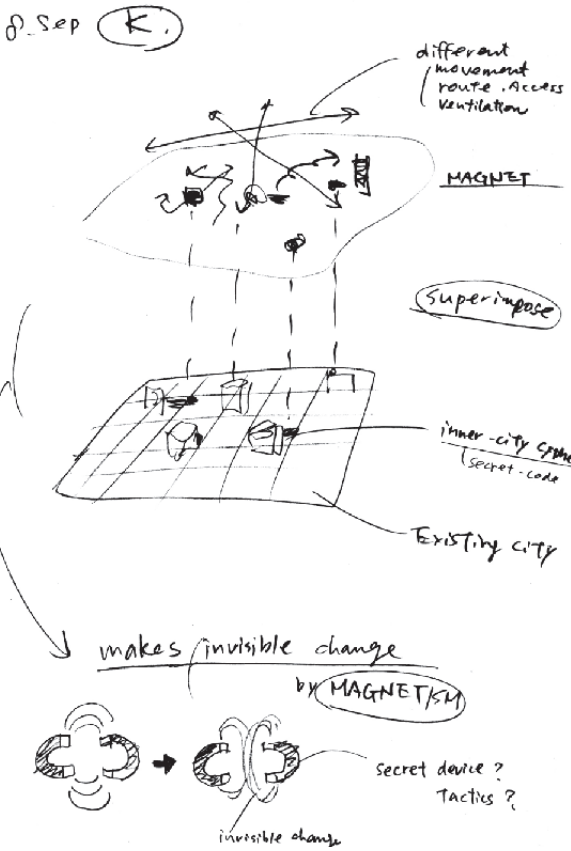 8_Sep K.
different
movement
route . Access
ventilation
MAGNET
superimpose
inner-city
secret-code
Existing city
makes invisible change
by MAGNET/SM
secret device ?
Tactics ?
invisible change